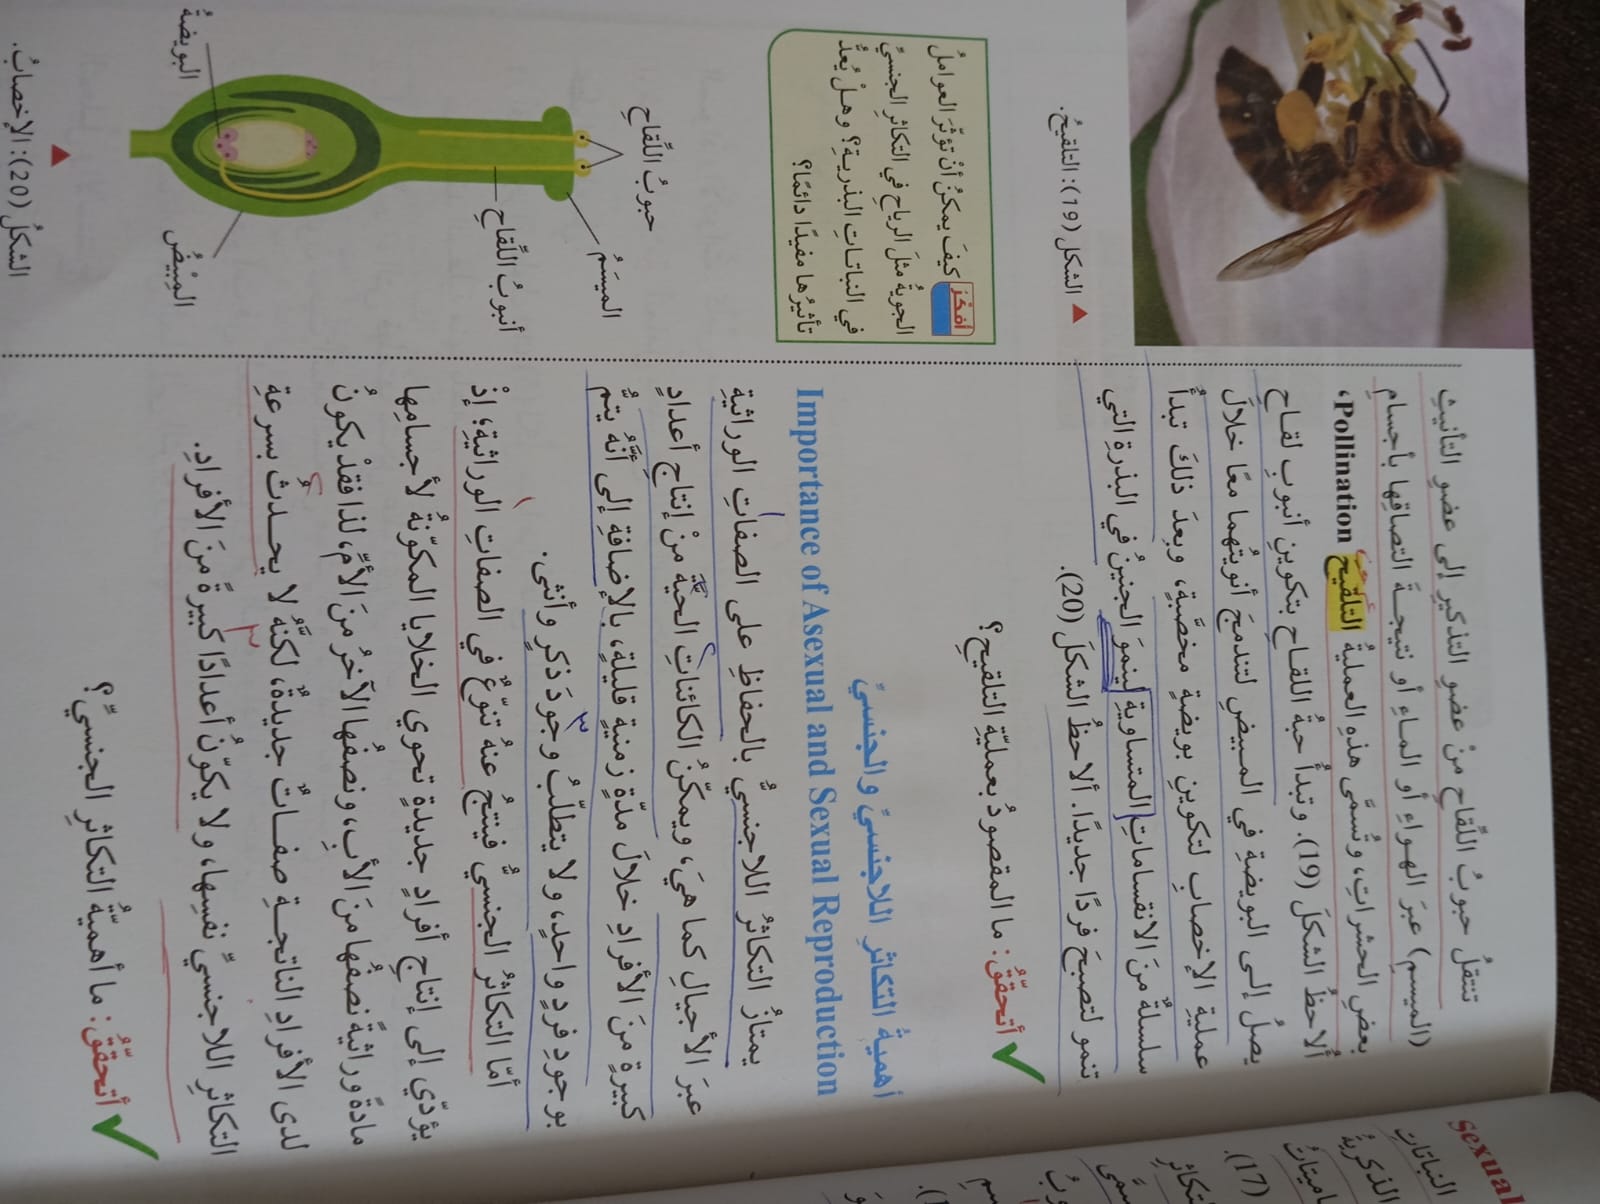 تنتقلُ حبوبُ اللّقاحِ منْ عضوِ التذكيرِ إلى عضوِ التأنيثِ
(الميسمِ) عبرَ الهواءِ أو الماءِ أو نتيجـةَ التصاقِها بأجسامِ
بعضِ الحشراتِ، وتُسمّى هذهِ العمليةُ التلقيحَ Pollination،
أُلاحظُ الشكلَ (19). وتبدأُ حبةُ اللقـاحِ بتكوينِ أنبوبِ لقـاحٍ
يصلُ إلى البويضةِ في المـبيضِ لتندمجَ أنويتُهما معًا خلالَ
عمليةِ الإخصابِ لتكوينِ بويضةٍ مخصَّبةٍ، وبعدَ ذلكَ تبدأُ
سلسلةٌ منَ الانقسـاماتِ المتساويةِ لينموَ الجنينُ في البذرةِ التي
تنمو لتصبحَ فردًا جديدًا. ألاحظُ الشكلَ (20).
أتحقّقُ: ما المقصودُ بعمليّةِ التلقيحِ؟
أهميةُ التكاثرِ اللاجنسيِّ والجنسيِّ
Importance of Asexual and Sexual Reproduction
يمتازُ التكاثرُ اللاجنسيُّ بالحفاظِ على الصفاتِ الوراثيةِ
عبرَ الأجيالِ كما هيَ، ويمكّنُ الكائناتِ الحيّةَ منْ إنتاجِ أعدادٍ
كبيرةٍ منَ الأفرادِ خلالَ مدّةٍ زمنيةٍ قليلةٍ، بالإضافةِ إلى أنَّهُ يتمُّ
بوجودِ فردٍ واحدٍ، ولا يتطلّبُ وجودَ ذكرٍ وأنثى.
أمّا التكاثرُ الجنسيُّ فينتجُ عنهُ تنوّعٌ في الصفاتِ الوراثيةِ؛ إذْ
يؤدّي إلى إنتاجِ أفرادٍ جديدةٍ تحوي الخلايا المكوّنةُ لأجسامِها
مادةً وراثيةً نصفُها منَ الأبِ، ونصفُها الآخرُ منَ الأمِّ، لذا فقدْ يكونُ
لدى الأفرادِ الناتجـةِ صفـاتٌ جديدةٌ، لكنَّهُ لا يحـدثُ بسرعةِ
التكاثرِ اللاجنسيِّ نفسِها، ولا يكوّنُ أعدادًا كبيرةً منَ الأفرادِ.
أتحقّقُ: ما أهميّةُ التكاثرِ الجنسيِّ؟
الشكل (19): التلقيحُ.
أفكّرُ
كيفَ يمكنُ أنْ تؤثّرَ العواملُ
الجويةُ مثلَ الرياحِ في التكاثرِ الجنسيِّ
في النباتـاتِ البذريـةِ؟ وهـلْ يُعدُّ
تأثيرُها مفيدًا دائمًا؟
حبوبُ اللّقاحِ
الميسَمُ
أنبوبُ اللّقاحِ
البويضةُ
المِبيضُ
الشكلُ (20): الإخصابُ.
Sexual
النباتاتِ
الذكريةُ
(17).